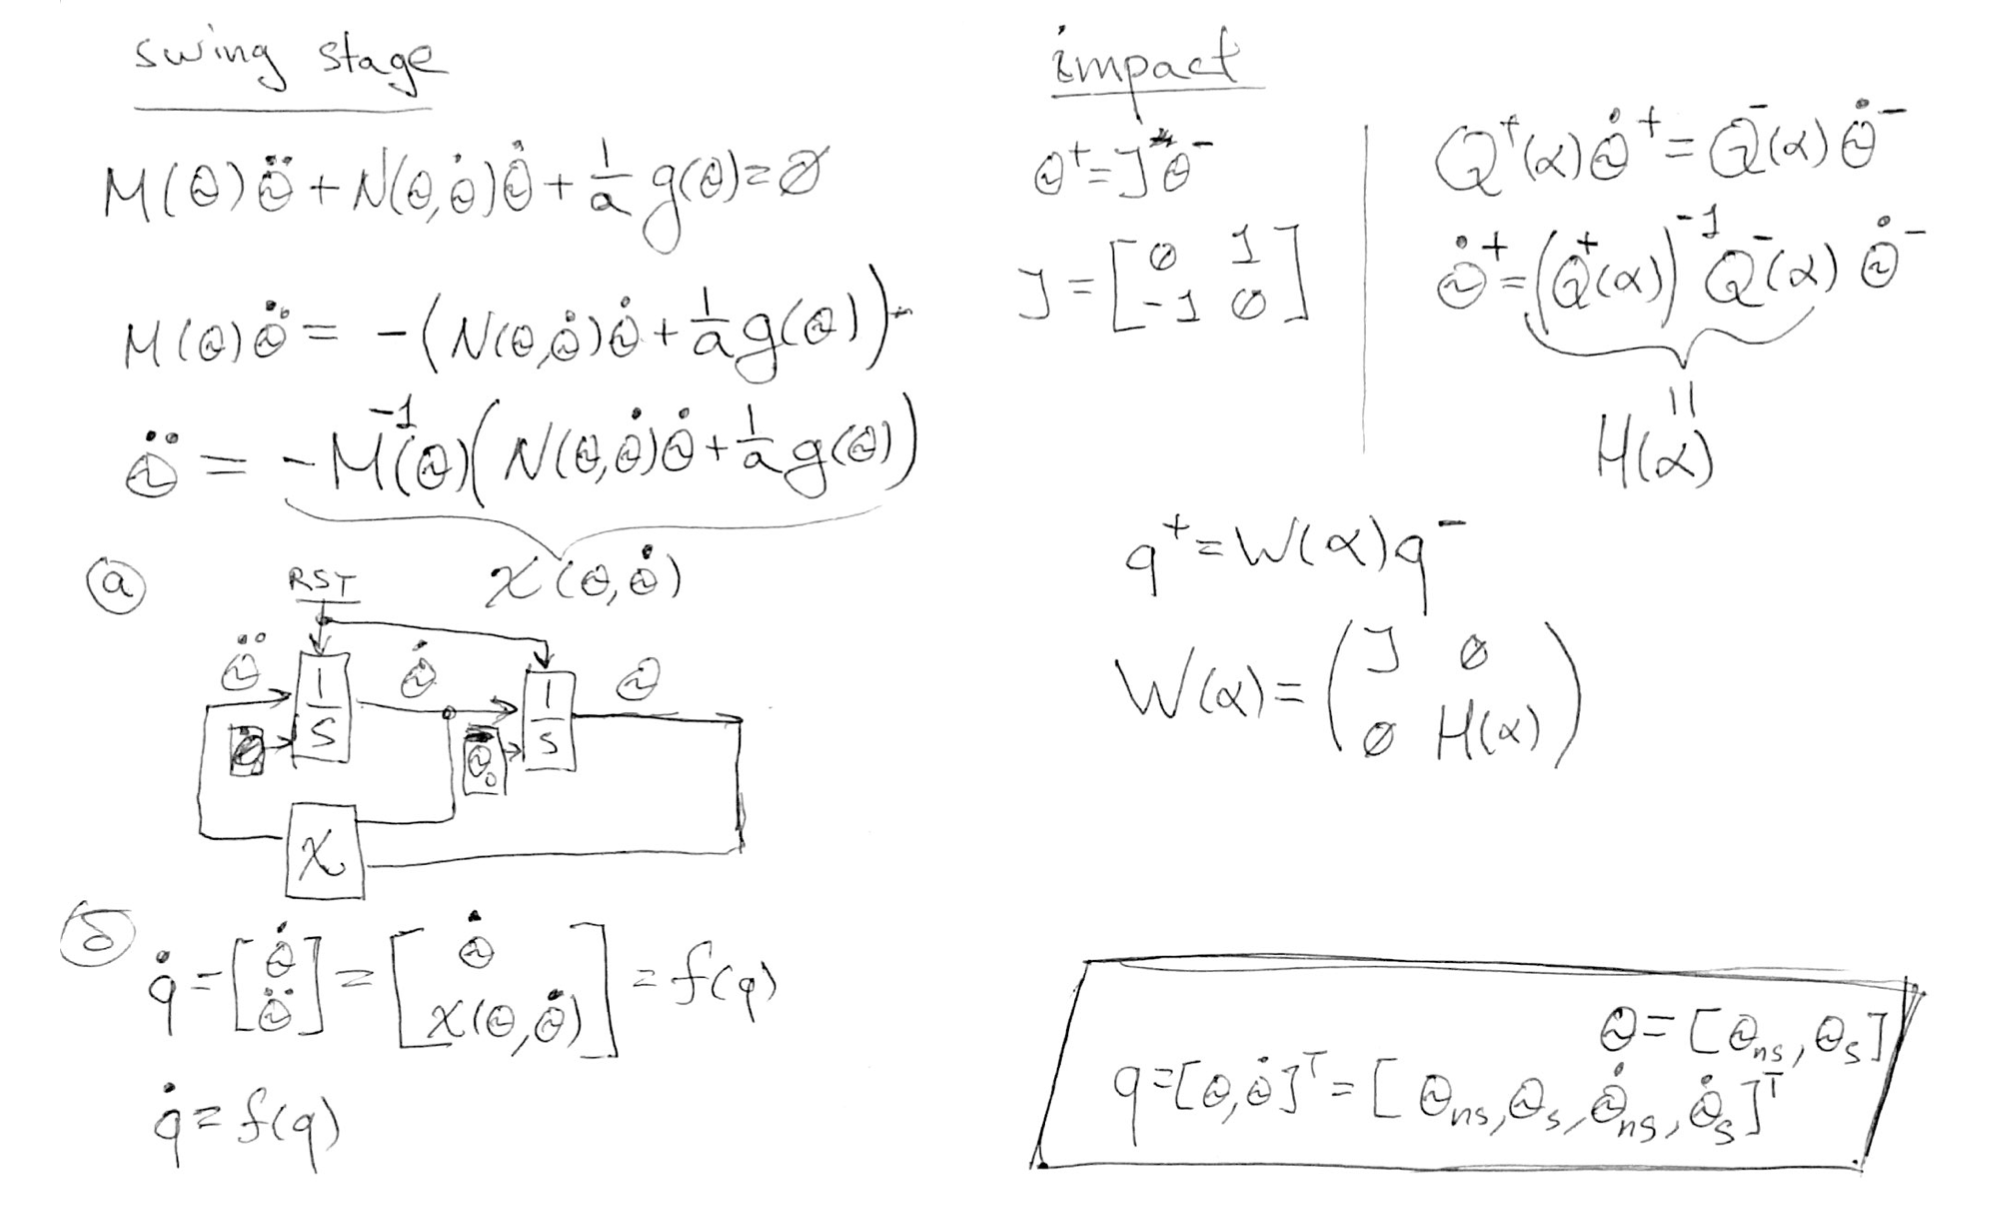 swing stage
M(θ)θ̈ + N(θ,θ̇)θ̇ + 1/a g(θ) = ∅
M(θ)θ̈ = -(N(θ,θ̇)θ̇ + 1/a g(θ))
θ̈ = -M⁻¹(θ)(N(θ,θ̇)θ̇ + 1/a g(θ))
χ(θ,θ̇)
ⓐ
RST
θ̈ 1/S θ̇ θ₀ 1/S θ
χ
б
q̇ = [θ̇ θ̈] = [θ̇ χ(θ,θ̇)] = f(q)
q̇ = f(q)
impact
θ⁺ = J θ⁻
J = [∅ 1
-1 ∅]
Q⁺(α)θ̇⁺ = Q⁻(α)θ̇⁻
θ̇⁺ = (Q⁺(α))⁻¹ Q⁻(α) θ̇⁻
=
H(α)
q⁺ = W(α)q⁻
W(α) = (J ∅
∅ H(α))
θ = [θns, θs]
q = [θ,θ̇]ᵀ = [θns, θs, θ̇ns, θ̇s]ᵀ